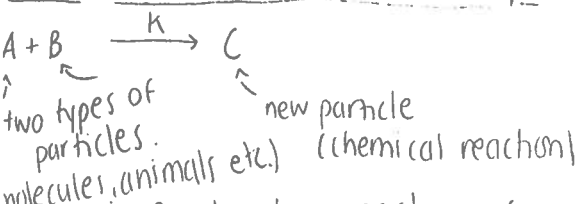 A + B K→ C
two types of
particles.
new particle
molecules, animals etc.) (chemical reaction)